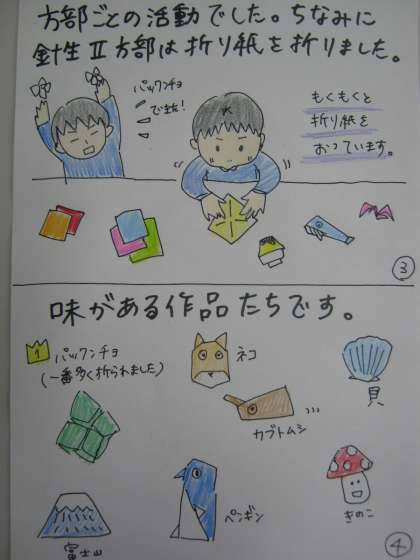 方部ごとの活動でした。ちなみに
針生Ⅱ方部は折り紙を折りました。
パックンチョ
でます!
もくもくと
折り紙を
おっています。
③
味がある作品たちです。
1 パックンチョ
(一番多く折られました)
ネコ
貝
カブトムシ
富士山
ペンギン
きのこ
④